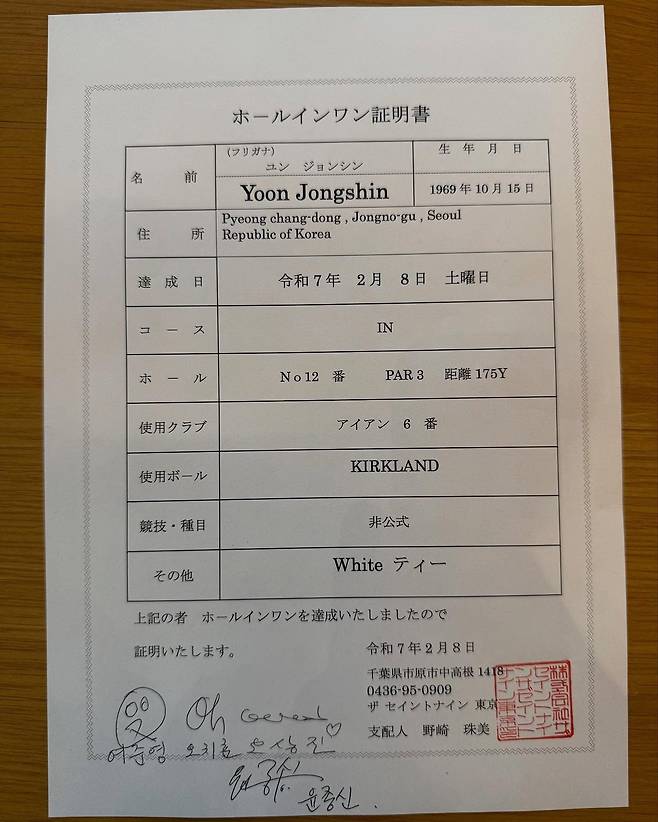 ホールインワン証明書
名 前
(フリガナ)
ユン ジョンシン
Yoon Jongshin
生 年 月 日
1969 年 10 月 15 日
住 所
Pyeong chang-dong , Jongno-gu , Seoul
Republic of Korea
達 成 日
令和 7 年 2 月 8 日 土曜日
コ ー ス
IN
ホ ー ル
No12 番 PAR 3 距離 175Y
使用クラブ
アイアン 6 番
使用ボール
KIRKLAND
競技・種目
非公式
その他
White ティー
上記の者 ホールインワンを達成いたしましたので
証明いたします。
令和 7 年 2 月 8 日
千葉県市原市中高根 1418
0436-95-0909
ザ セイントナイン 東京
支配人 野崎 珠美
Oh
오상진
윤종신